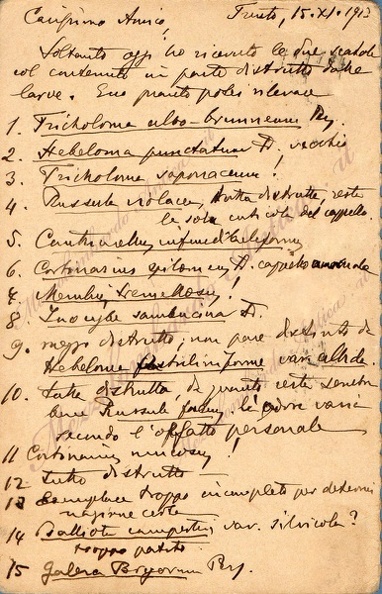 Carissimo Amico, Trento, 15.XI.1913
Soltanto oggi ho ricevuto le due scatole
col contenuto in parte distrutto dalle
larve. Ecco quanto potei rilevare
1. Tricholoma albo-brunneum
2. Hebeloma punctatum Fr. vecchio
3. Tricholoma saponaceum!
4. Russula violacea, tutta distrutta, resta
la sola cuticola del cappello.
5. Cantharellus infundibuliformis
6. Cortinarius Fr. cappello anormale
7. Merulius tremellosus!
8. Inocybe sambucina Fr.
9. mezzo distrutto, non pare distinto da
Hebeloma var.
10. tutta distrutta, da quanto resta
bene Russula l'odore varia
secondo l'olfatto personale
11 Cortinarius mucosus!
12 tutto distrutto
13 Esemplare troppo incompleto per determi
nazione certa
14 Psalliota campestris var. silvicola?
troppo patito
15 Galera Bryorum